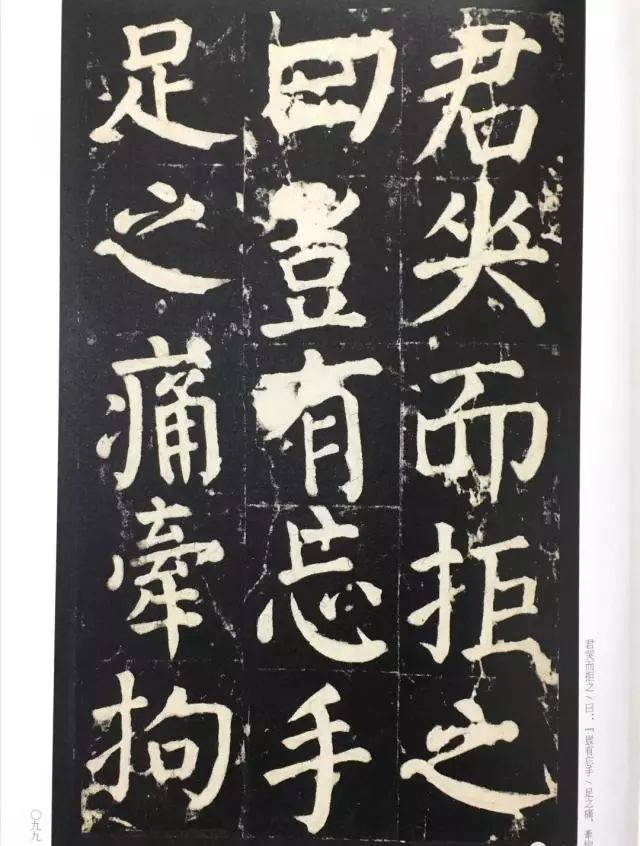 君哭而拒之
曰豈有忘手
足之痛牽拘
君哭而拒之／曰：『豈有忘手／足之痛，牽拘
〇九九